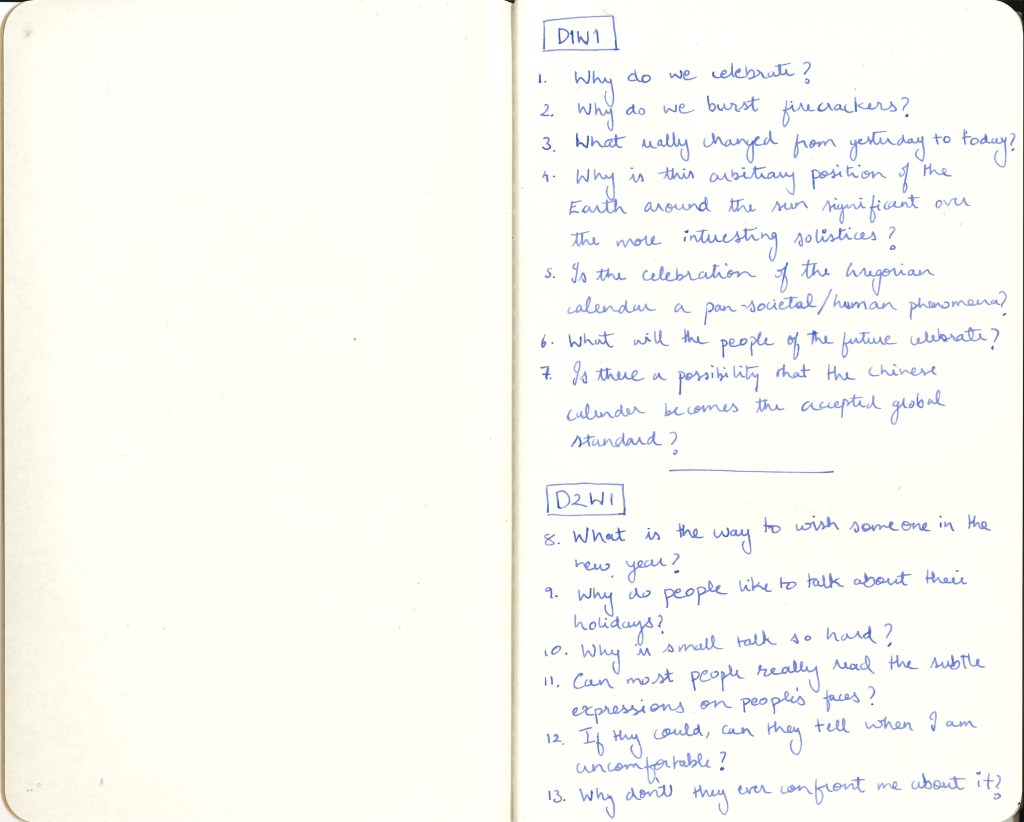 D1W1
1. Why do we celebrate?
2. Why do we burst firecrackers?
3. What really changed from yesterday to today?
4. Why is this arbitrary position of the
Earth around the sun significant over
the more interesting solistices?
5. Is the celebration of the Gregorian
calendar a pan-societal/human phenomena?
6. What will the people of the future celebrate?
7. Is there a possibility that the Chinese
calender becomes the accepted global
standard?
D2W1
8. What is the way to wish someone in the
new year?
9. Why do people like to talk about their
holidays?
10. Why is small talk so hard?
11. Can most people really read the subtle
expressions on people's faces?
12. If thy could, can they tell when I am
uncomfortable?
13. Why don't they ever confront me about it?